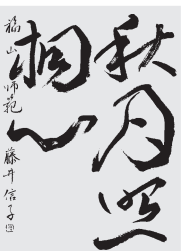 秋月照
桐心
福山師範 藤井信子